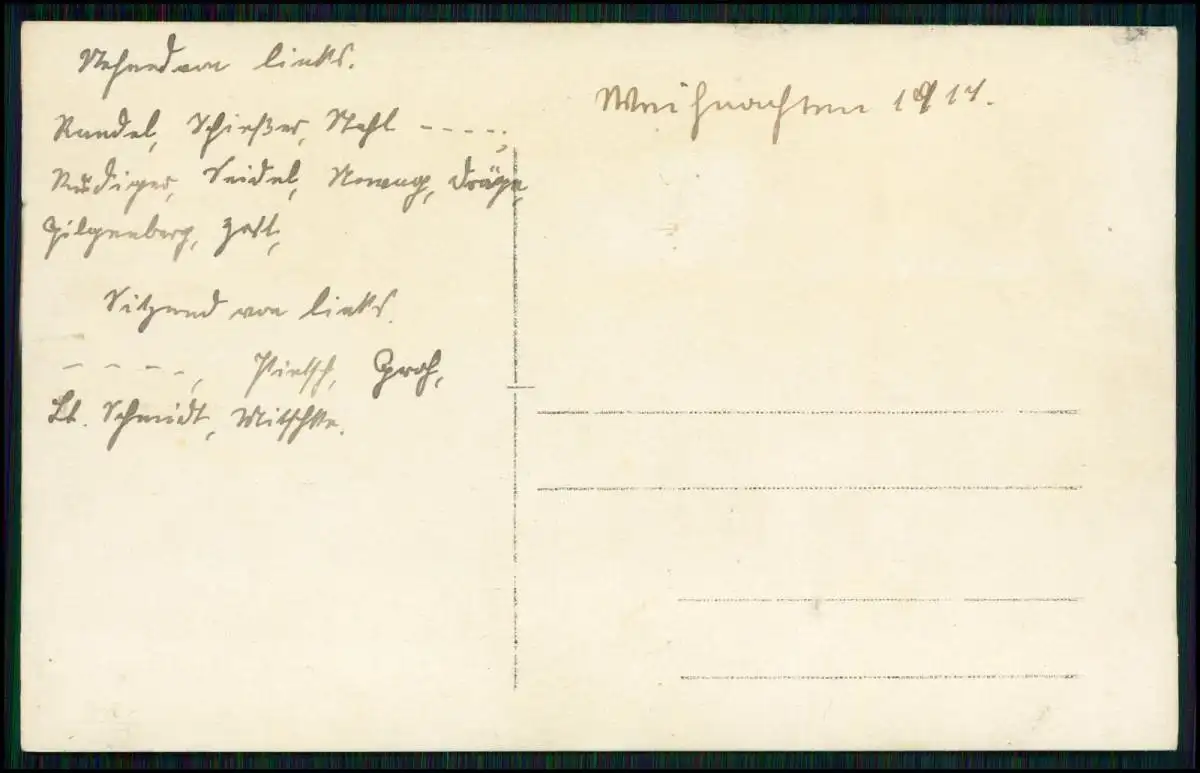 Stehend von links.
Randel, Schießer, Stahl - - - -,
Rüdiger, Seidel, Nowag, Dräger,
Hilgenberg, Jost,
Sitzend von links.
- - - -, Pietsch, Groß,
Lt. Schmidt, Mitschke.
Weihnachten 1917.